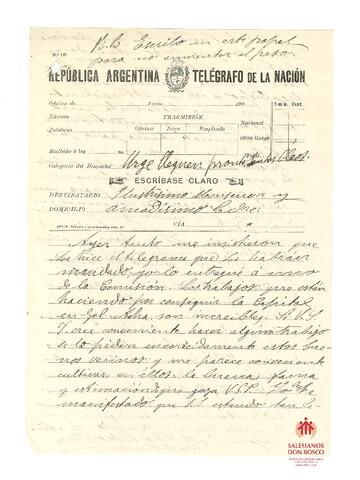 N.B. Escribo en este papel
para no aumentar el peso.
REPÚBLICA ARGENTINA TELÉGRAFO DE LA NACIÓN
Oficina de Fecha 190
Número
Palabras
TRASMISIÓN
Oficina Hora Empleado
Nacional
otras líneas
Recibido á las
Categoría del Despacho Urge lleguen pronto los Óleos.
ESCRÍBASE CLARO
DESTINATARIO Ilustrísimo Monseñor y
DOMICILIO amadísimo Padre:
VÍA
Ayer tanto me insistieron que
les hice el telegrama que les habrán
mandado, yo lo entregué á uno
de la Comisión. Los trabajos que están
haciendo por conseguir la Capital
en Gol. Acha, son increíbles. Si V.S.
I. cree conveniente hacer algún trabajo
se lo piden encarecidamente estos bue-
nos vecinos y me parece conveniente
cultivar en ellos la buena fama
y estimación de que goza V.S.I.
manifestado que S.I. estando
SALESIANOS
DON BOSCO